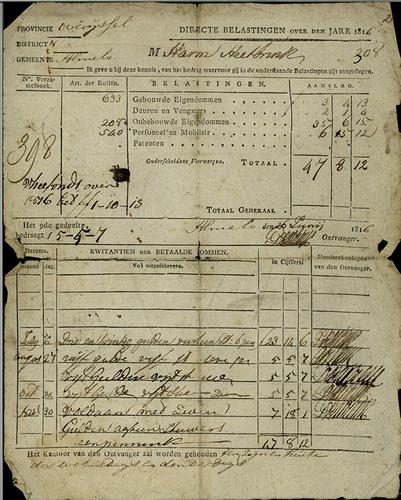 PROVINCIE Overijssel DIRECTE BELASTINGEN OVER DEN JARE 1816
DISTRICT 8
GEMEENTE Almelo M Harm 308
Ik geve u bij deze kennis, van het bedrag waarvoor gij in de onderstaande Belastingen zijt aangeslagen.
No. Verzamelboek. Art. der Rollen. BELASTINGEN. AANSLAG.
633 Gebouwde Eigendommen 3 4 13
Deuren en Vengsters 2 1 6
208 Onbebouwde Eigendommen 35 6 15
540 Personeel en Mobilair 6 15 12
Patenten
398
Onderscheidene Voorwerpen. TOTAAL 47 8 12
over
1816 11-10-13
TOTAAL GENERAAL
Almelo den 26 Junij 1816
Het 9de gedeelte bedraagt 5-5-7 Ontvanger.
Datums. KWITANTIEN DER BETAALDE SOMMEN. Handteekeningen van den Ontvanger.
maand dag. Vol uitgeschreven. in Cijffers.
July 6 Drie en twintig gulden 23 11 6
august 27 vijf gulde vijf st 5 5 7
vijf Gulden vijf st 5 5 7
Oct vijf Gulde vijf 5 5 7
30 Voldaan met Zeven 7 18 1
Gulden agtien Stuivers
een penning 47 8 12
Het Kantoor van den Ontvanger zal worden gehouden